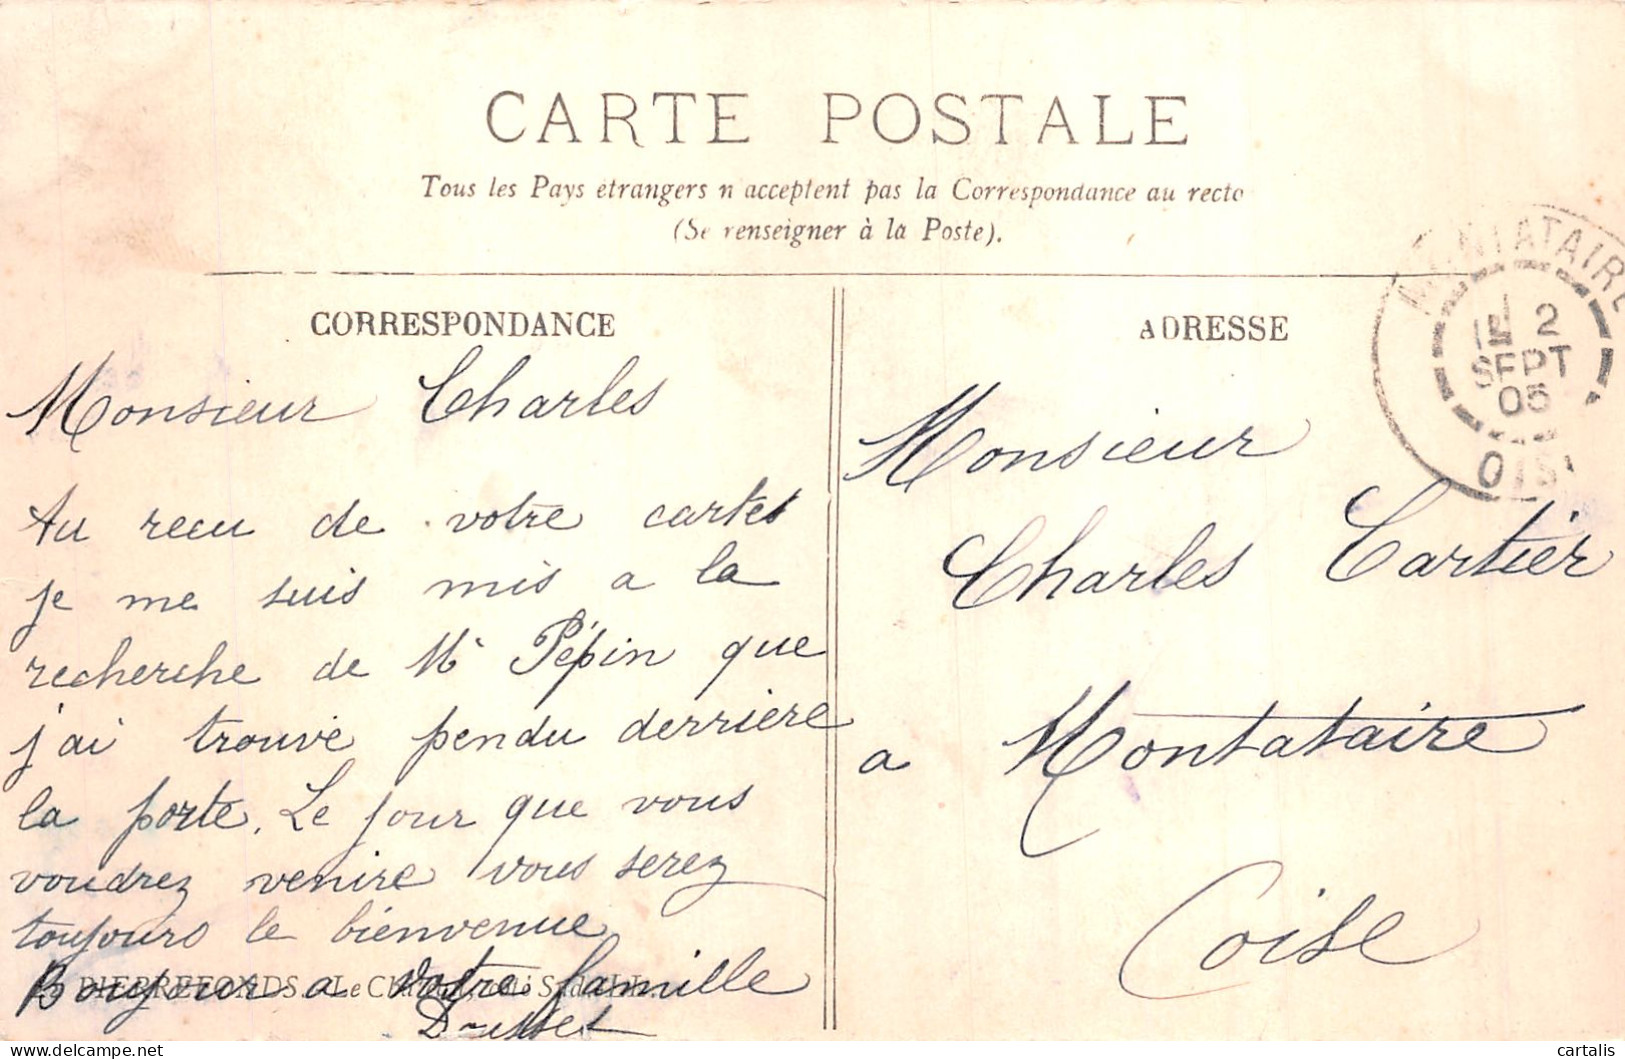 CARTE POSTALE
Tous les Pays étrangers n'acceptent pas la Correspondance au recto
(Se renseigner à la Poste).
CORRESPONDANCE
Monsieur Charles
Au recu de votre cartes
je me suis mis a la
recherche de Mr Pépin que
j'ai trouvé pendu derrière
la porte. Le jour que vous
voudrez venire vous serez
toujours le bienvenue
Bonjour a votre famille
PIERREFONDS. - Le Château, côté Sud.
ADRESSE
Monsieur
Charles Cartier
a Montataire
Oise
MONTATAIRE
2
SEPT
05
OISE
cartalis
delcampe.net